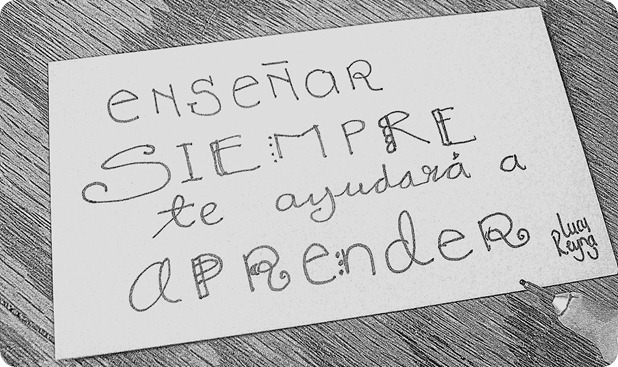 enseñar
SIEMPRE
te ayudará a
aprender
Lucy
Reyna